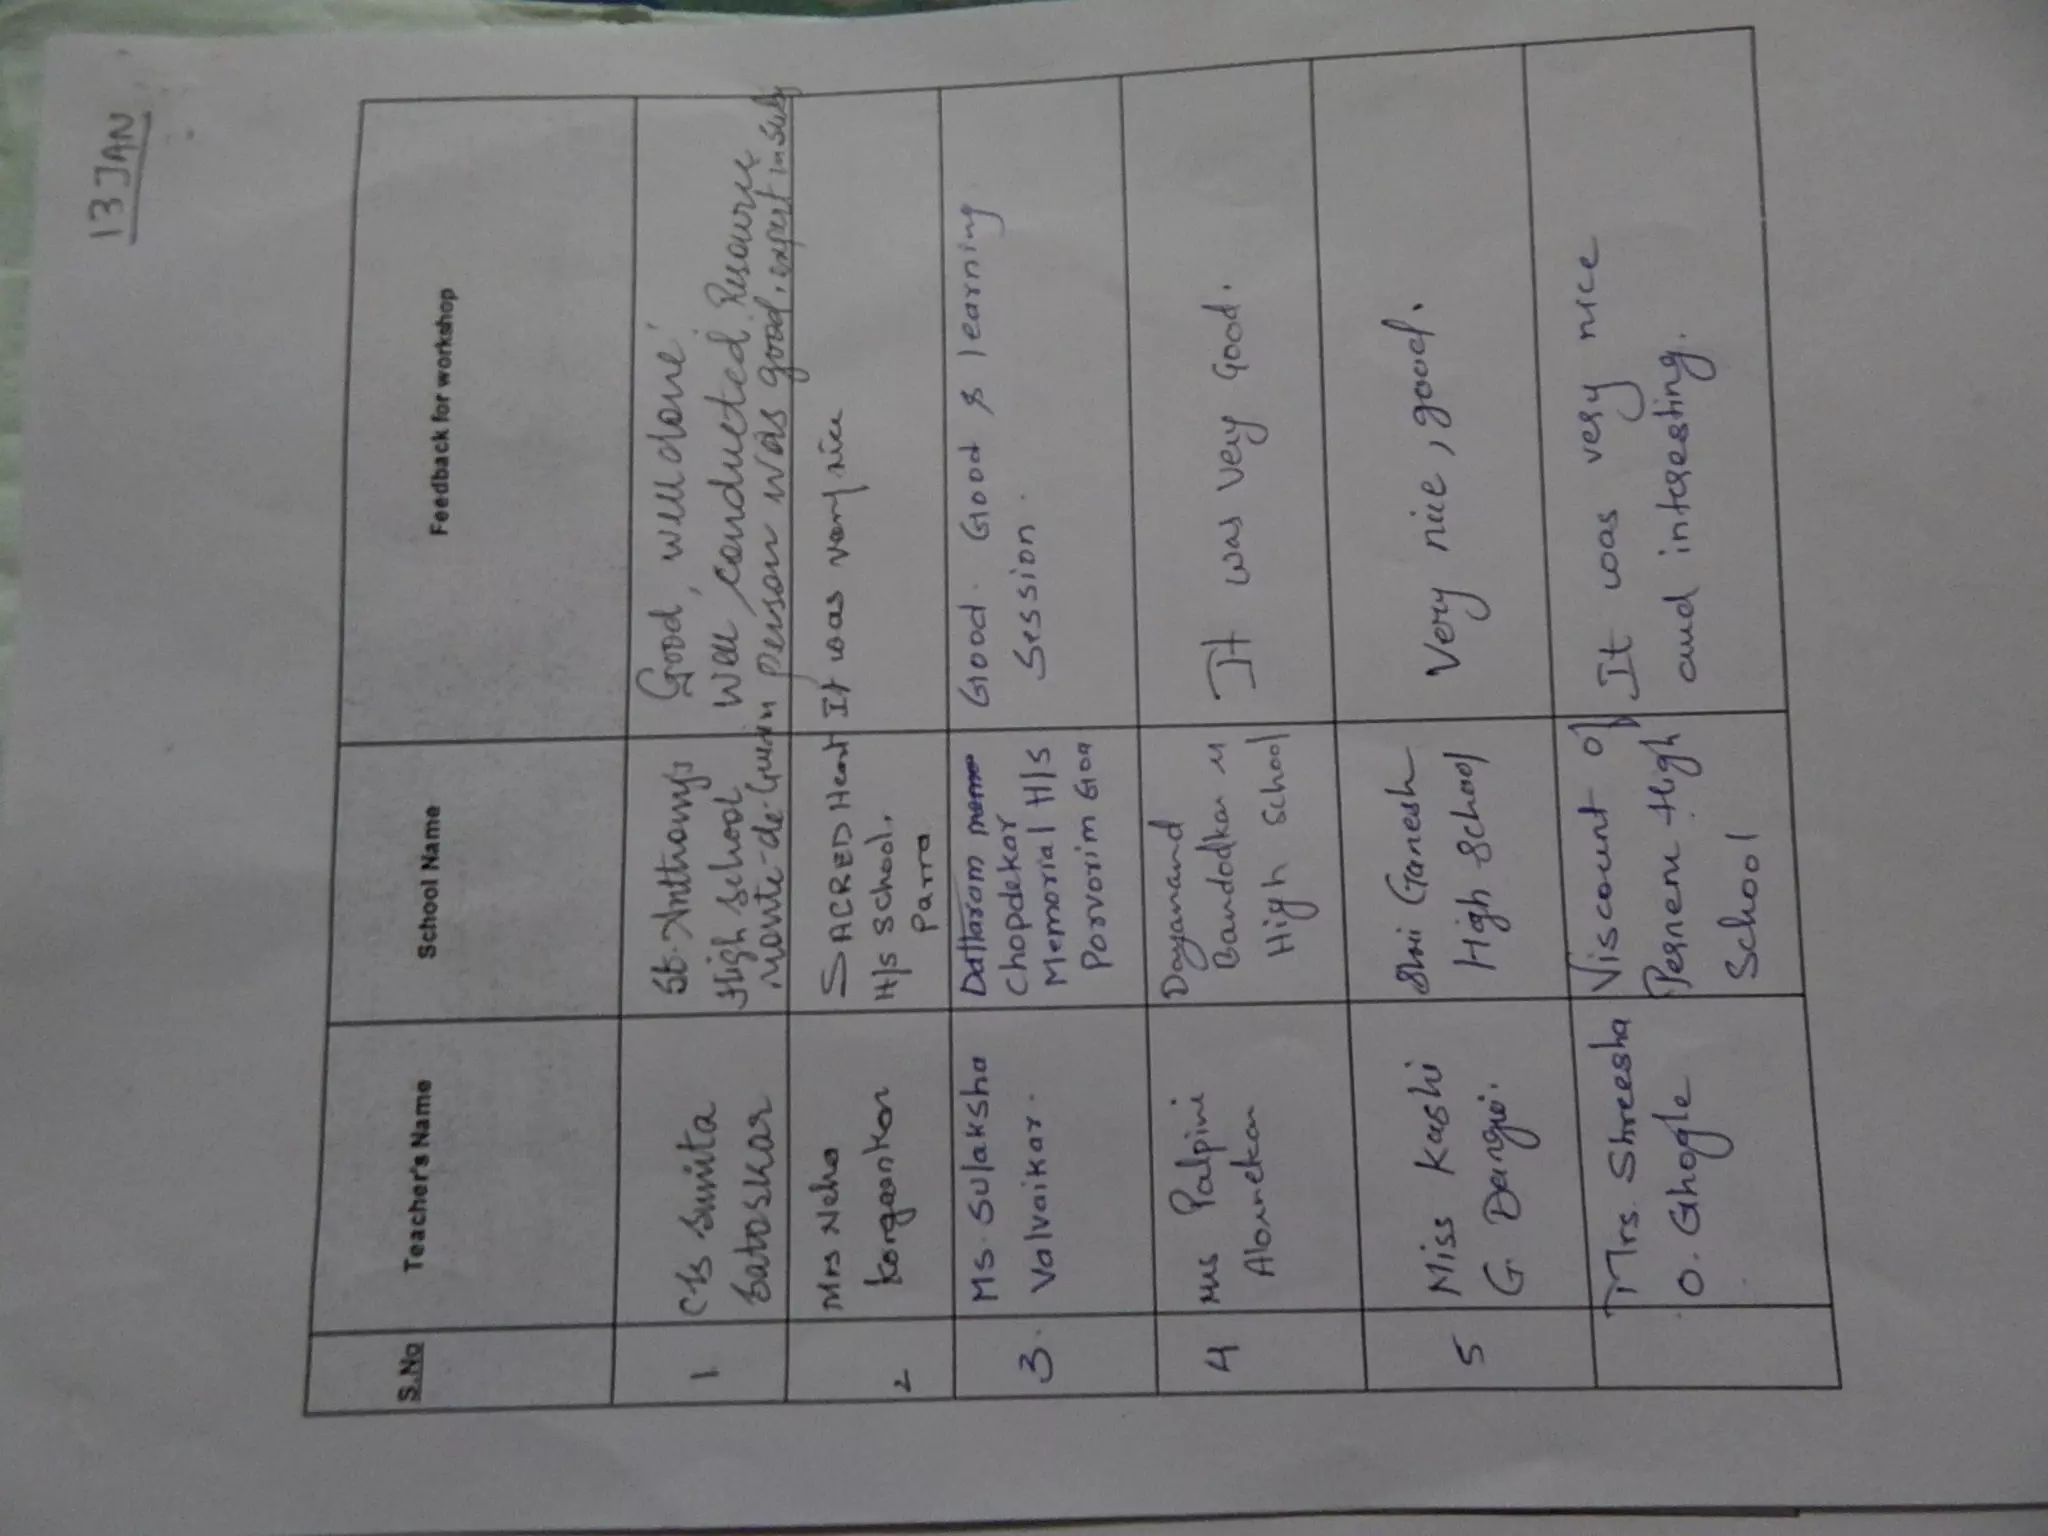 13 JAN
S.No Teacher's Name School Name Feedback for workshop
1 Sunita St. Anthony's Good, well done.
High School well conducted. Resource
Monte-de-Guirim person was good, expert in
2 Mrs Neha SACRED Heart It was very nice
Korgaonkar H/s School,
Parra
3. Ms. Sulaksha Dattaram Good. Good & learning
Valvaikar. Chopdekar Session.
Memorial H/S
Porvorim Goa
4 Dayanand It was very Good.
Bandodkar
High School
5 Miss Kashi Shri Ganesh Very nice, good.
G. Dangi. High School
Mrs. Shreesha Viscount of It was very nice
O. Ghogle Pernem High and interesting.
School